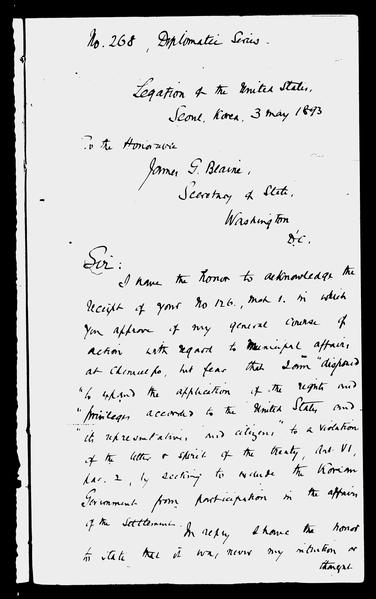 No. 268, Diplomatic Series.
Legation of the United States,
Seoul, Korea, 3 May 1893
To the Honorable
James G. Blaine,
Secretary of State,
Washington
D.C.
Sir:
I have the honor to acknowledge the
receipt of your No 126, Mch 1. in which
you approve of my general course of
action with regard to Municipal affairs
at Chemulpo, but fear that I am "disposed
"to expand the application of the rights and
"privileges accorded to the United States and
"its representatives and citizens" to a violation
of the letter & spirit of the treaty, Art VI,
par. 2, by seeking to exclude the Korean
Government from participation in the affairs
of the Settlement. In reply I have the honor
to state that it was never my intention or
thought